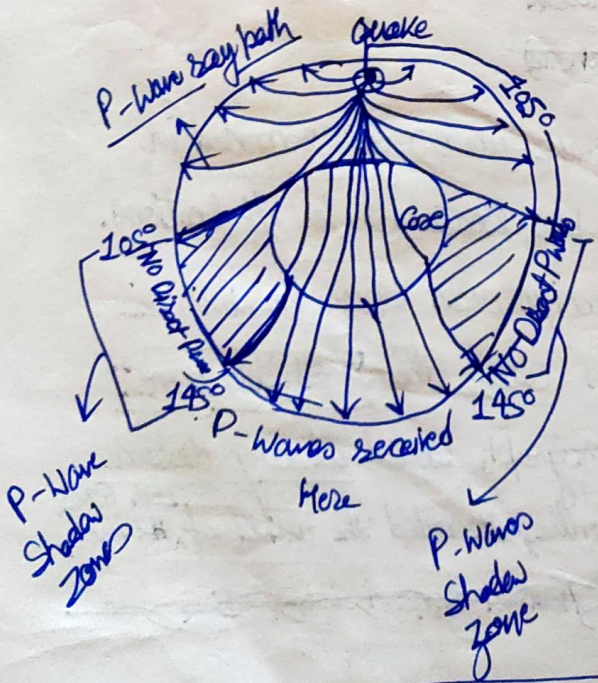 Quake
P-Wave ray path
105°
Core
105°
No Direct P
No Direct P
145°
145°
P-Waves received
Here
P-Wave
Shadow
Zones
P-Waves
Shadow
Zone